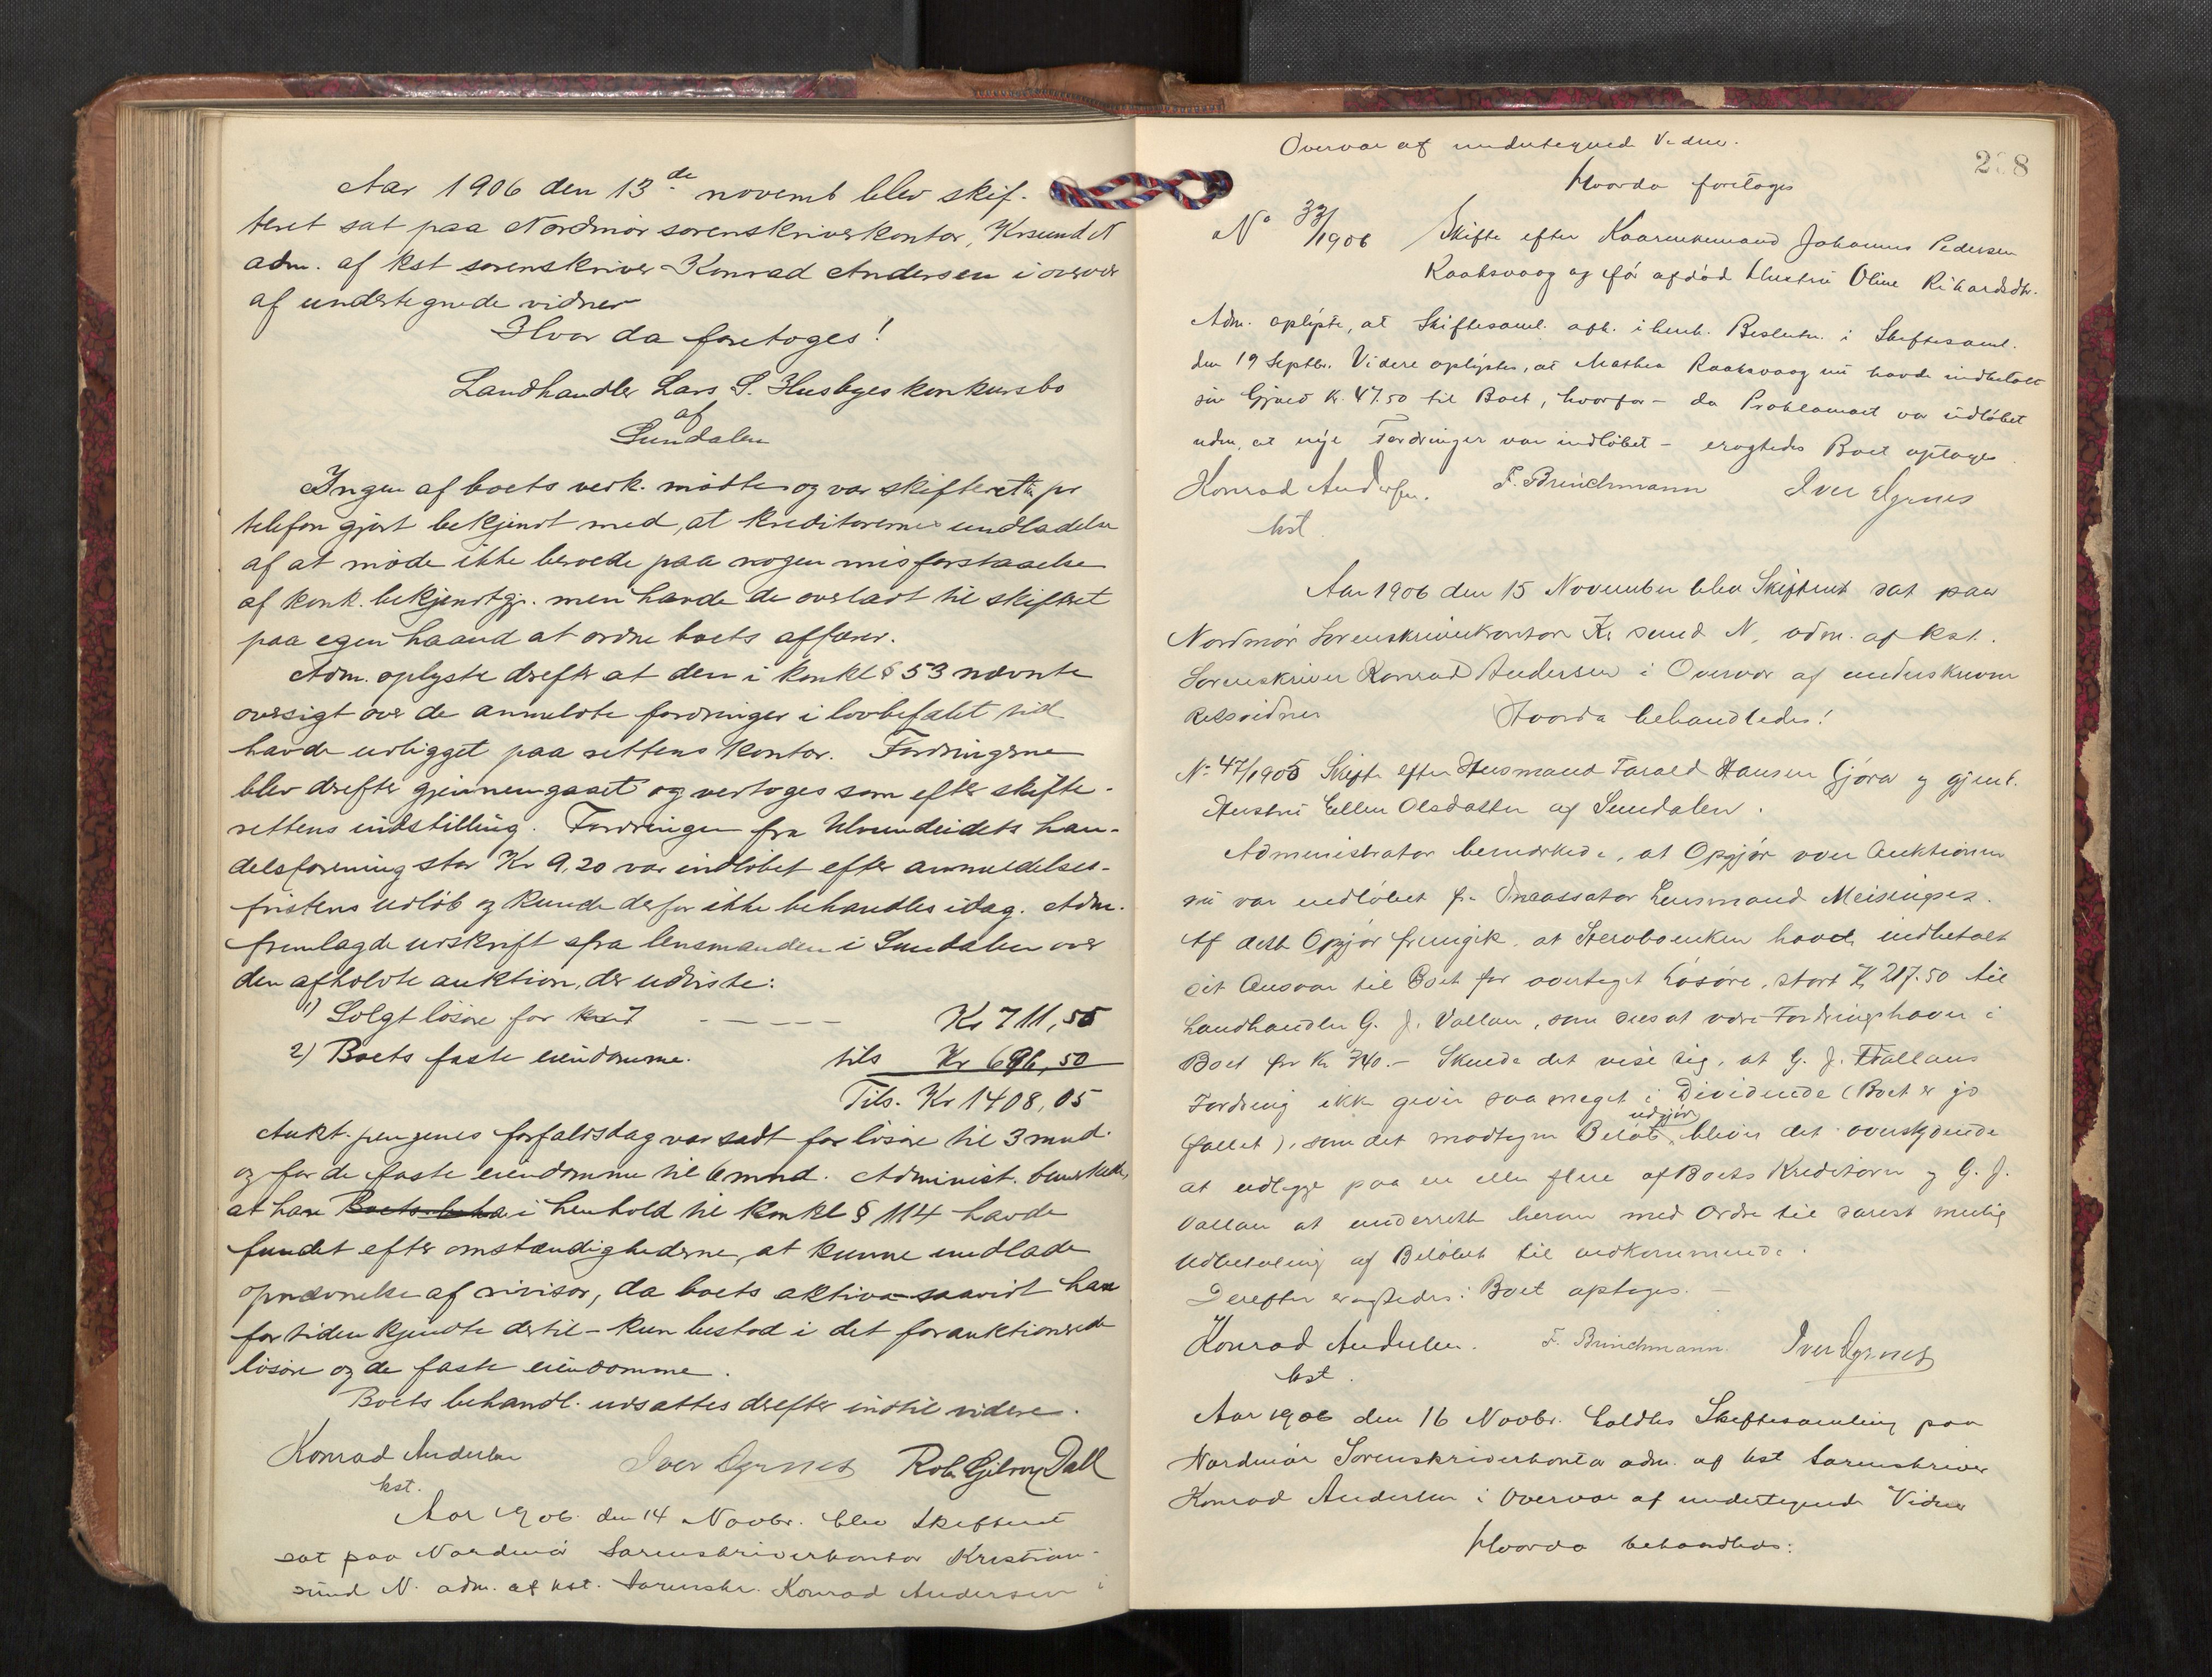 Aar 1906 den 13de novemb blev skif-
teret sat paa Nordmør sorenskriverkontor, Krsund N
adm. af kst sorenskriver Konrad Andersen i overvær
af undertegnede vidner
Hvor da foretoges!
Landhandler Lars S. Husbyes konkursbo
af
Sundalen
Ingen af boets vedk. mødte og var skifteretten pr
telefon gjort bekjendt med, at kreditorernes undladelse
af at møde ikke beroede paa nogen misforstaaelse
af konk. bekjendtgj. men havde de overladt til skifteret
paa egen haand at ordne boets affærer.
Adm. oplyste derefter at den i konkl § 53 nævnte
oversigt over de anmeldte fordringer i lovbefalet tid
havde udligget paa rettens kontor. Fordringerne
blev derefter gjennemgaaet og vedtoges som efter skifte-
rettens indstilling. Fordringen fra Ulvundeidets han-
delsforening stor Kr 9,20 var indløbet efter anmeldelses-
fristens udløb og kunde derfor ikke behandles idag. Adm.
fremlagde udskrift fra lensmanden i Sundalen over
den afholdte auktion, der udviste:
1) Solgt løsøre for - - - - Kr 711,55
2) Boets faste eiendomme. tils Kr 696,50
Tils. Kr 1408,05
Aukt. pengenes forfaldsdag var sadt for løsøre til 3 mnd.
og for de faste eiendomme til 6 mnd. Administ. bemærkede,
at han i henhold til konkl § 114 havde
fundet efter omstændighederne, at kunne undlade
opnævnelse af revisor, da boets aktiva saavidt han
for tiden kjendte dertil - kun bestod i det forauktionerede
løsøre og de faste eiendomme.
Boets behandl. udsattes derefter indtil videre.
Konrad Andersen Iver Ogrnes Rob Gilroy Dall
kst.
Aar 1906 den 14 Novbr. blev Skifteret
sat paa Nordmør Sorenskriverkontor Kristian-
sund N. adm. af kst. Sorenskr. Konrad Andersen i
Overvær af undertegned Vidner.
238
Hvorda foretoges
No 33/1906 Skifte efter Kaarenkemand Johannes Pedersen
Raaksvaag og før afdød Hustru Oline Rikardsdtr.
Adm. oplyste, at Skiftesaml. afh. i henh. Beslutn. i Skiftesaml.
den 19 Septbr. Videre oplystes, at Mathea Raaksvaag nu havde indbetalt
sin Gjæld Kr. 47.50 til Boet, hvorfor - da Proklamaet var udløbet
uden at nye Fordringer var indløbet - eragtedes Boet optages
Konrad Andersen. F. Brinchmann Iver Ogrnes
kst.
Aar 1906 den 15 November blev Skifteret sat paa
Nordmør Sorenskriverkontor Kr. sund N, adm. af kst.
Sorenskriver Konrad Andersen i Overvær af underskrevne
Retsvidner Hvorda behandledes!
No 47/1905 Skifte efter Husmand Tarald Hansen Gjøra og gjenl.
Hustru Ellen Olsdatter af Sundalen.
Administrator bemærkede, at Opgjør over Auktionen
nu var indløbet fr. Incassator Lensmand Meisingset.
Af dette Opgjør fremgik, at Stervboenken havde indbetalt
sit Ansvar til Boet for overtaget Løsøre, stort Kr 217.50 til
Landhandler G. J. Vallan, som sees at være Fordringshaver i
Boet for Kr 740.- Skulde det vise sig, at G. J. Vallans
Fordring ikke giver saa meget i Dividende (Boet er jo
fallit), som det modtagne Beløb udgjør, bliver det overskydende
at udlægge paa en eller flere af Boets Kreditorer og G. J.
Vallan at underrette herom med Ordre til snarest mulig
Udbetaling af Beløbet til vedkommende.
Derefter eragtedes: Boet optages. -
Konrad Andersen. F. Brinchmann. Iver Ogrnes
kst.
Aar 1906 den 16 Novbr. holdtes Skiftesamling paa
Nordmør Sorenskriverkontor adm. af kst Sorenskriver
Konrad Andersen i Overvær af undertegnede Vidner
Hvorda behandledes: